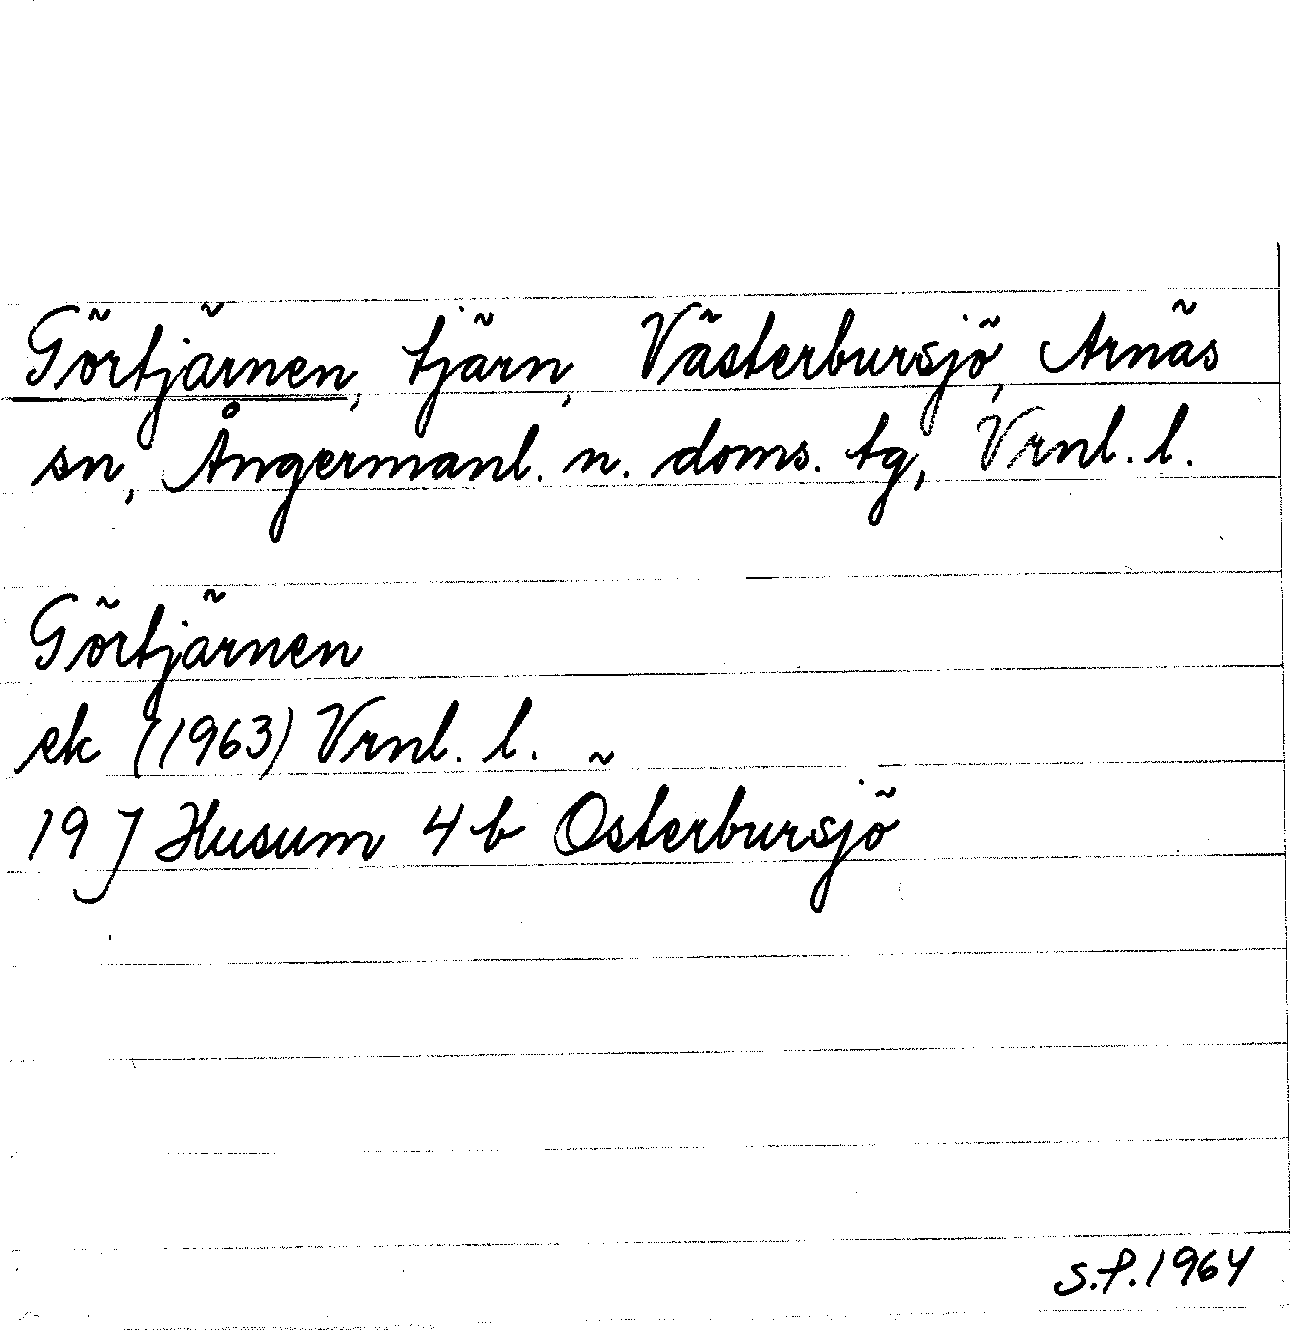 Görtjärnen, tjärn, Västerbursjö, Arnäs
sn, Ångermanl. n. doms. tg, Vrnl. l.
Görtjärnen
ek (1963) Vrnl. l.
19 J Husum 4 b Österbursjö
S.P. 1964